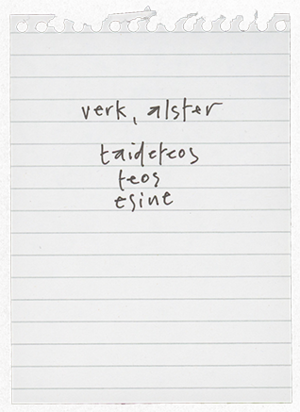 verk, alster
taideteos
teos
esine